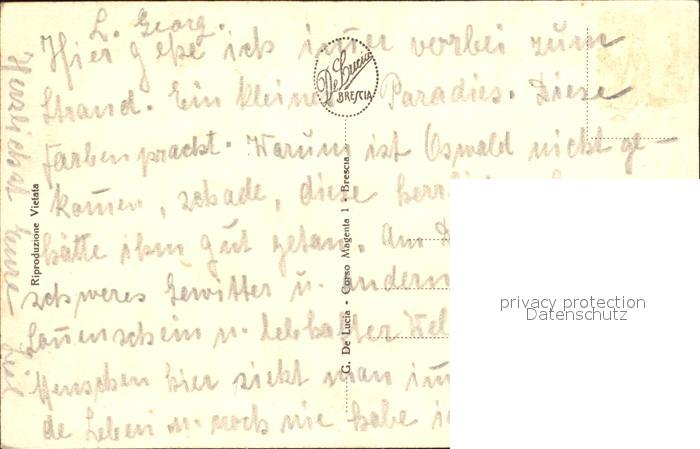 L. Georg.
Hier gehe ich immer vorbei zum
Strand. Ein kleines Paradies. Diese
Farbenpracht. Warum ist Oswald nicht ge-
kommen, schade, diese
hätte ihm gut getan. Am
schweres Gewitter u. andern
Sonnenschein u. lebhafter
Menschen hier sieht man
de Leben u. noch nie habe
Herzlichst Eure
De Lucia
BRESCIA
Riproduzione Vietata
G. De Lucia - Corso Magenta 1 - Brescia
privacy protection
Datenschutz